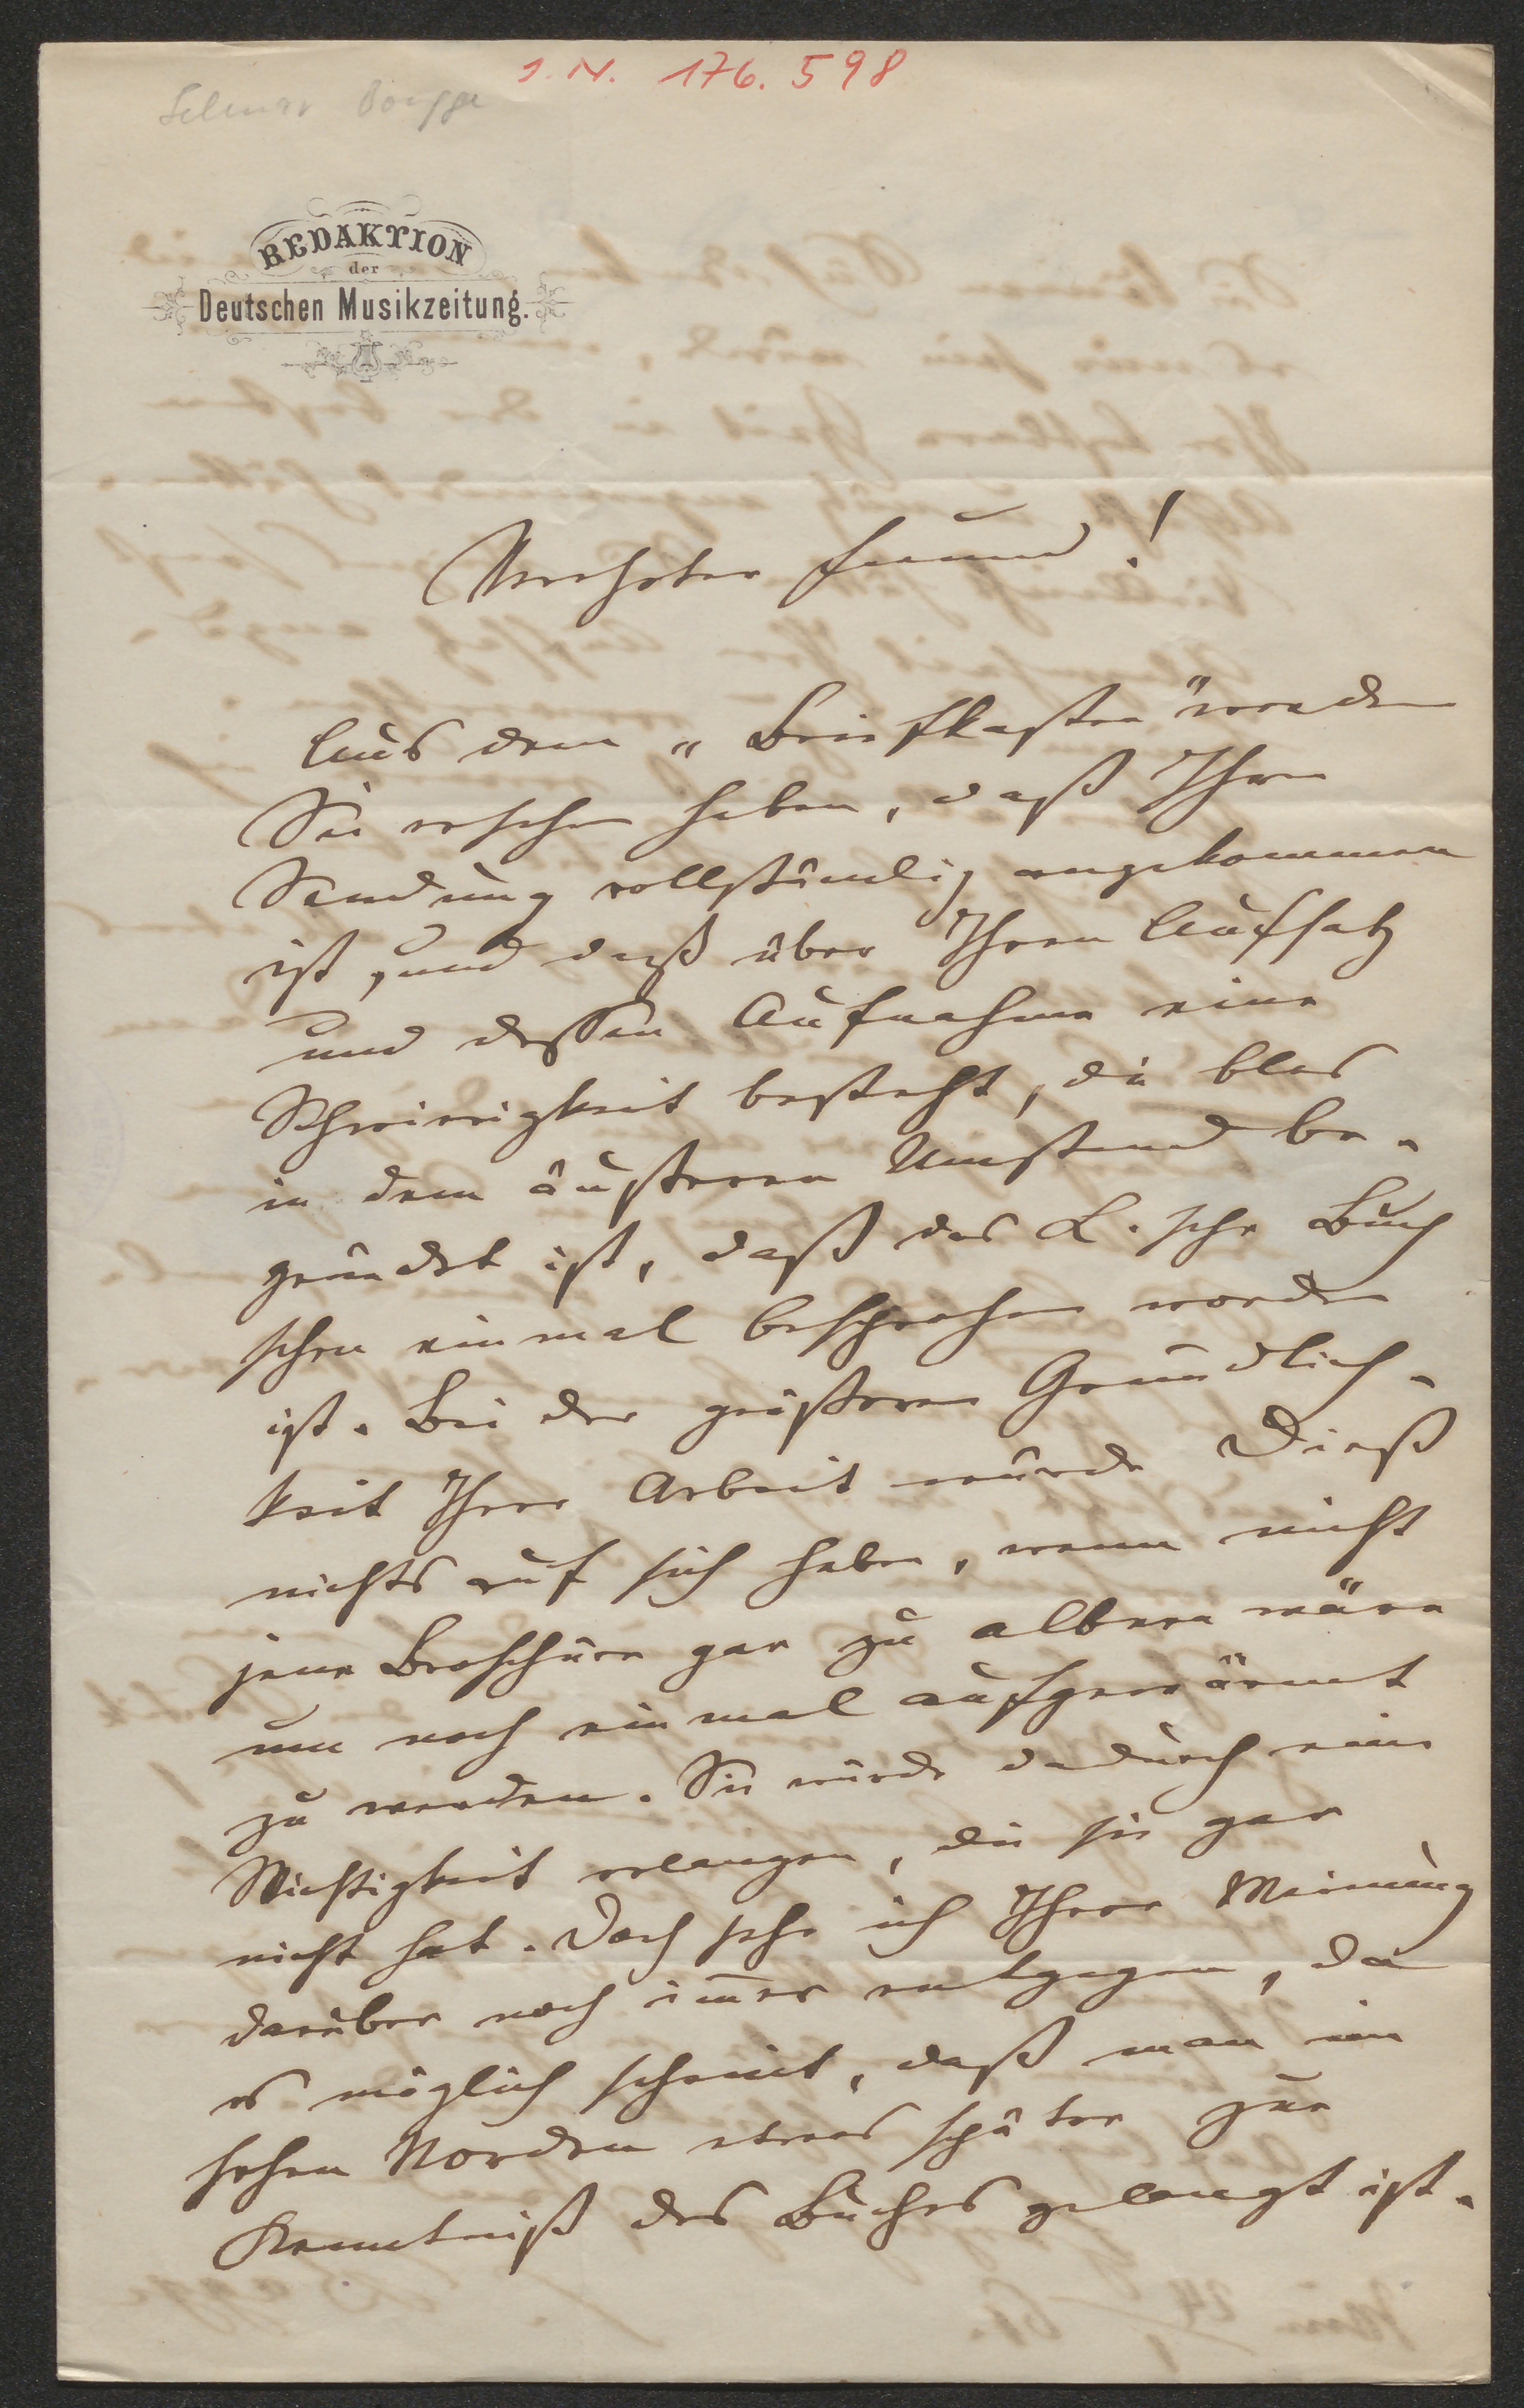 I.N. 176.598
Selmar Bagge
REDAKTION
der
Deutschen Musikzeitung.
Verehrter Freund!
Aus dem „Briefkasten" werden
Sie ersehen haben, daß Ihre
Sendung vollständig angekommen
ist, und daß über Ihren Aufsatz
und dessen Aufnahme eine
Schwierigkeit besteht, die blos
in dem äußeren Umstand be-
gründet ist, daß das L.sche Buch
schon einmal besprochen worden
ist. Bei der größeren Gründlich-
keit Ihrer Arbeit würde Dieß
nichts auf sich haben, wenn nicht
jene Broschüre gar zu albern wäre
um noch einmal aufgewärmt
zu werden. Sie würde dadurch eine
Wichtigkeit erlangen, die sie gar
nicht hat. Doch sehe ich Ihrer Meinung
darüber noch im̅er entgegen, da
es möglich scheint, daß man im
hohen Norden etwas später zur
Kenntniß des Buches gelangt ist.